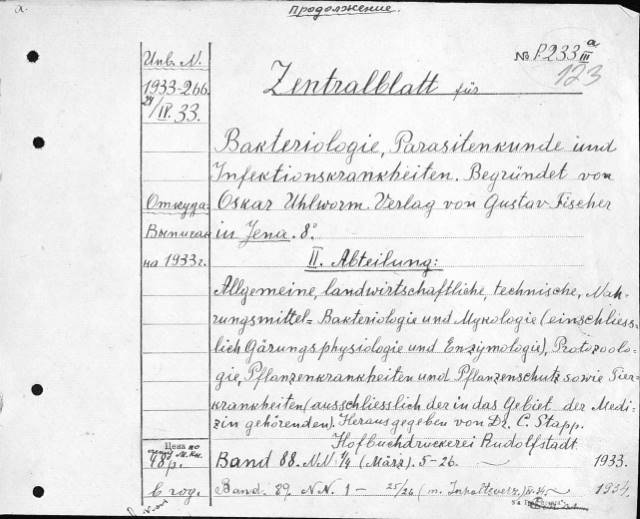 a. Продолжение.
№ P.233 III a
123
Инв. N.
1933-266
28/IV. 33.
Zentralblatt für
Bakteriologie, Parasitenkunde und
Infektionskrankheiten. Begründet von
Откуда: Oskar Uhlworm. Verlag von Gustav Fischer
Выписан in Jena. 8°.
на 1933 г. II. Abteilung:
Allgemeine, landwirtschaftliche, technische, Nah-
rungsmittel= Bakteriologie und Mykologie (einschliess-
lich Gärungsphysiologie und Enzymologie), Protozoolo-
gie, Pflanzenkrankheiten und Pflanzenschutz sowie Tier-
krankheiten (ausschliesslich der in das Gebiet der Medi-
zin gehörenden). Herausgegeben von Dr. C. Stapp.
Hofbuchdruckerei Rudolfstadt.
Цена по
48 р. Band 88. NN 1/4 (März). 5-26. 1933.
в год. Band. 89. N N. 1 - 25/26 (m. Inhaltsverz.) 1934.